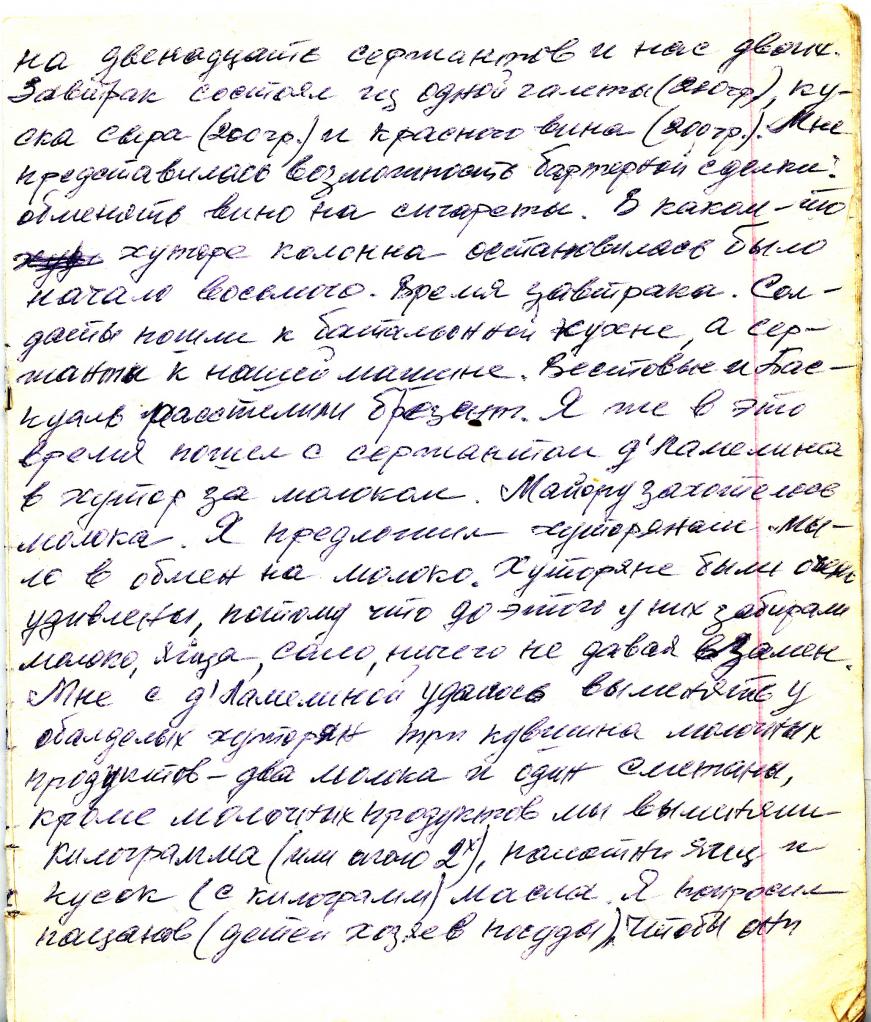 на двенадцать сержантов и нас двоих.
Завтрак состоял из одной галеты (200гр), ку-
ска сыра (200гр.) и красного вина (200гр.). Мне
представилась возможность бартерной сделки:
обменять вино на сигареты. В каком-то
хуторе колонна остановилась было
начало восьмого. Время завтрака. Сол-
даты пошли к батальонной кухне, а сер-
жанты к нашей машине. Вестовые и Пас-
куаль расстелили брезент. Я же в это
время пошел с сержантом д'Памелина
в хутор за молоком. Майору захотелось
молока. Я предложил хуторянам мы-
ло в обмен на молоко. Хуторяне были очень
удивлены, потому что до этого у них забирали
молоко, яйца, сало, ничего не давая взамен.
Мне с д'Памелиной удалось выменять у
обалделых хуторян три кувшина молочных
продуктов - два молока и один сметаны,
кроме молочных продуктов мы выменяли
килограмма (или около 2х), яиц и
кусок (с килограмм) масла. Я попросил
пацанов (детей хозяев посуды), чтобы они